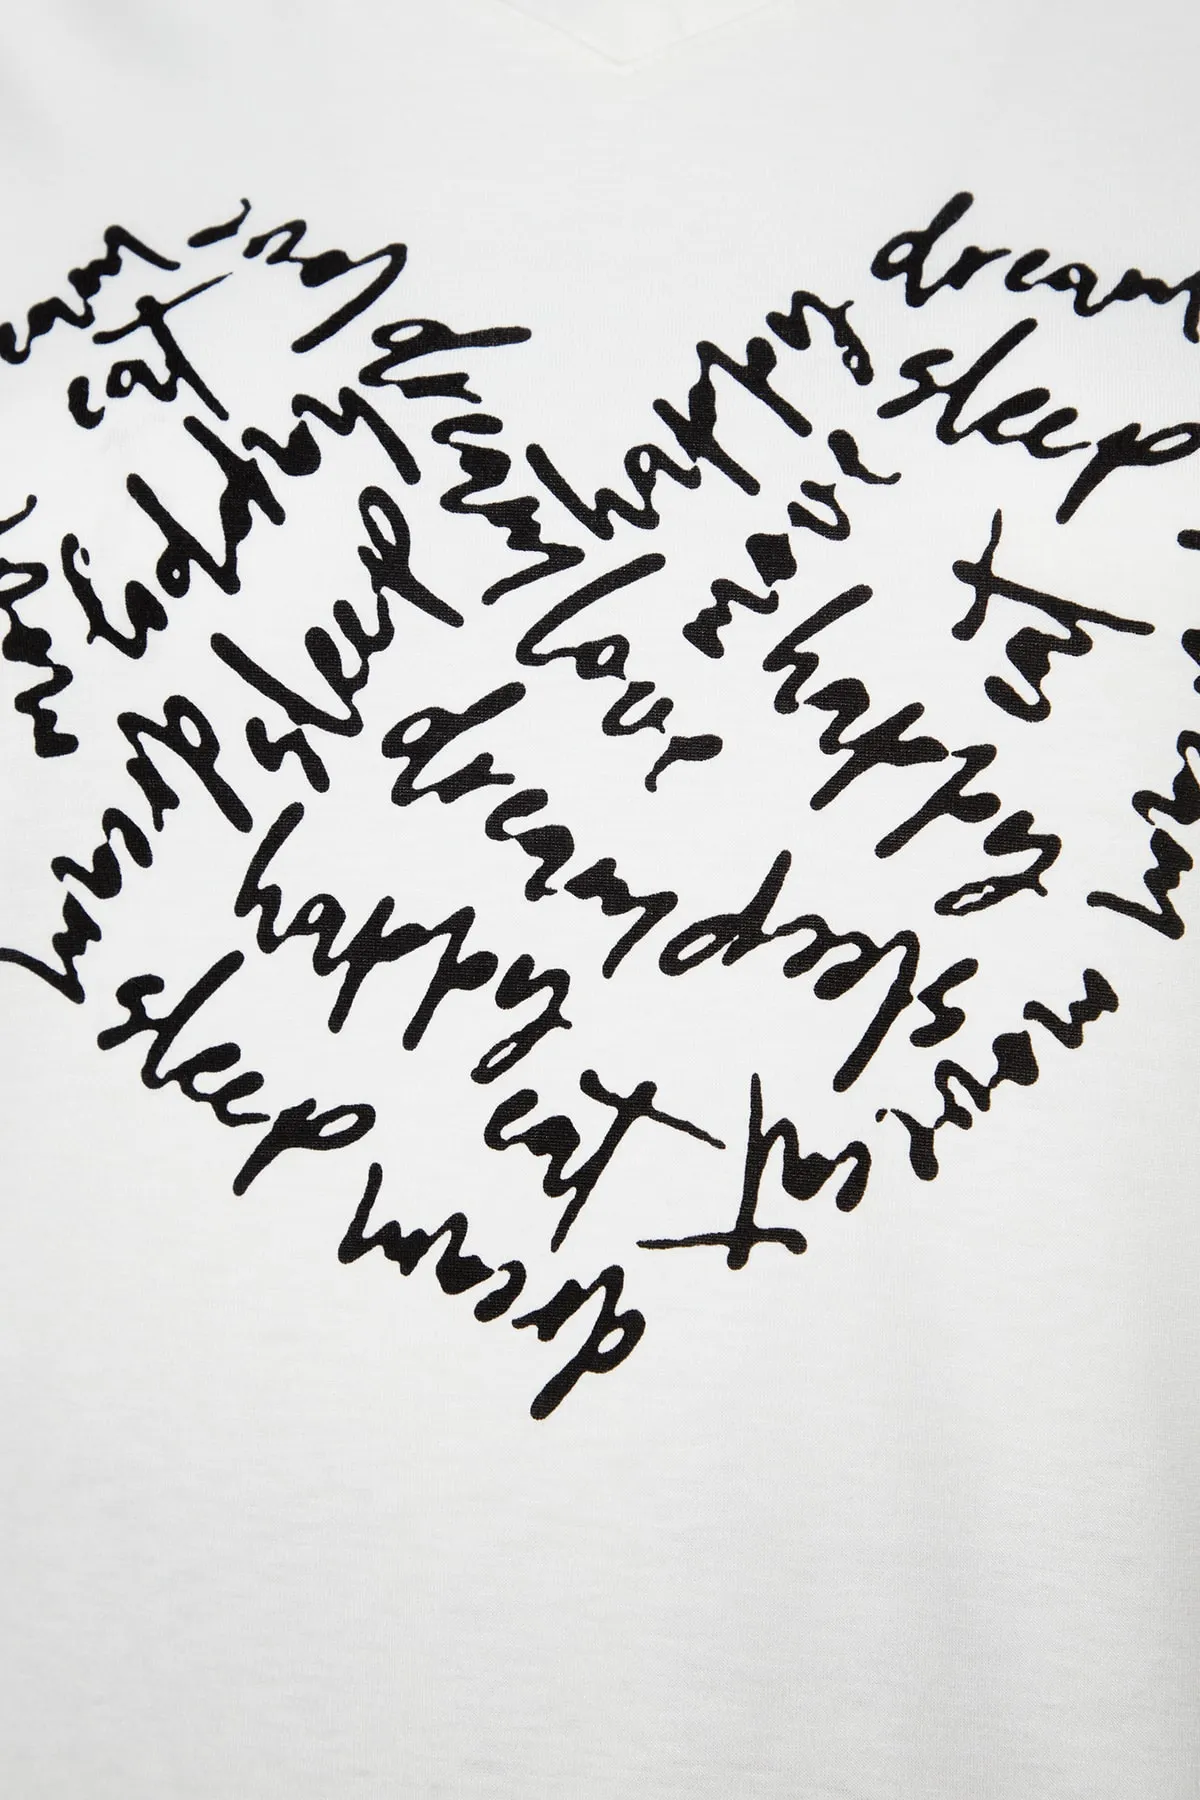 dream
eat
love
dream
happy
dream
sleep
happy
sleep
love
move
happy
eat
dream
sleep
dream
happy
sleep
move
sleep
eat
eat
dream